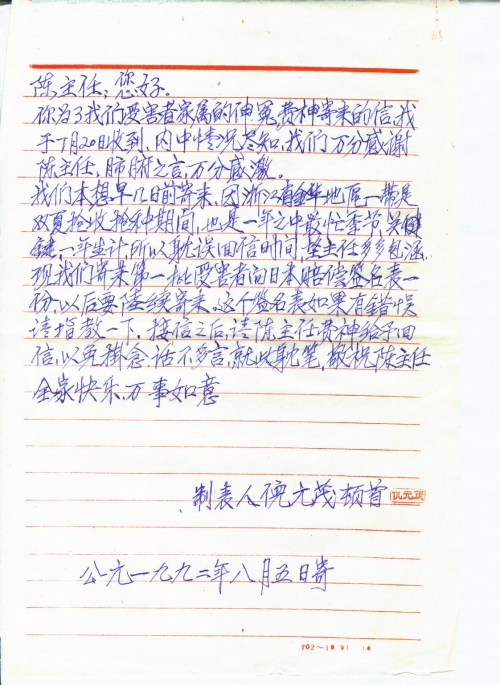 陈主任：您好。
你为了我们受害者家属的伸冤，费神寄来的信，我
于7月20日收到，内中情况尽知，我们万分感谢
陈主任，肺腑之言，万分感激。
我们本想早几日前寄来，因浙江省金华地区一带是
双夏抢收抢种期间，也是一年之中最忙季节，关键
键，一年生计所以耽误回信时间，望主任多多包涵。
现我们寄来第一批受害者向日本赔偿签名表一
份，以后要陆续寄来，这个签名表如果有错误
请指教一下，接信之后，请陈主任费神给予回
信，以免掛念，话不多言，就此耽笔，敬祝陈主任
全家快乐，万事如意
制表人 倪元茂 顿首
公元一九九二年八月五日寄